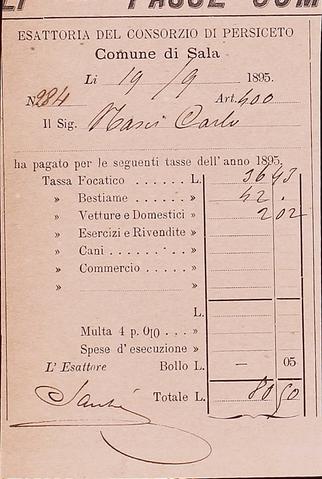 TASSE COM
ESATTORIA DEL CONSORZIO DI PERSICETO
Comune di Sala
Li 19/9 1895.
N. 284 Art. 400
Il Sig. Carlo
ha pagato per le seguenti tasse dell'anno 1895.
Tassa Focatico . . . . . . L. 36 43
» Bestiame . . . . . . » 42 .
» Vetture e Domestici » 2 02
» Esercizi e Rivendite »
» Cani . . . . . . . . »
» Commercio . . . . . »
» »
L.
Multa 4 p. 0|0 . . . »
Spese d'esecuzione »
L'Esattore Bollo L. — 05
Totale L. 80 50